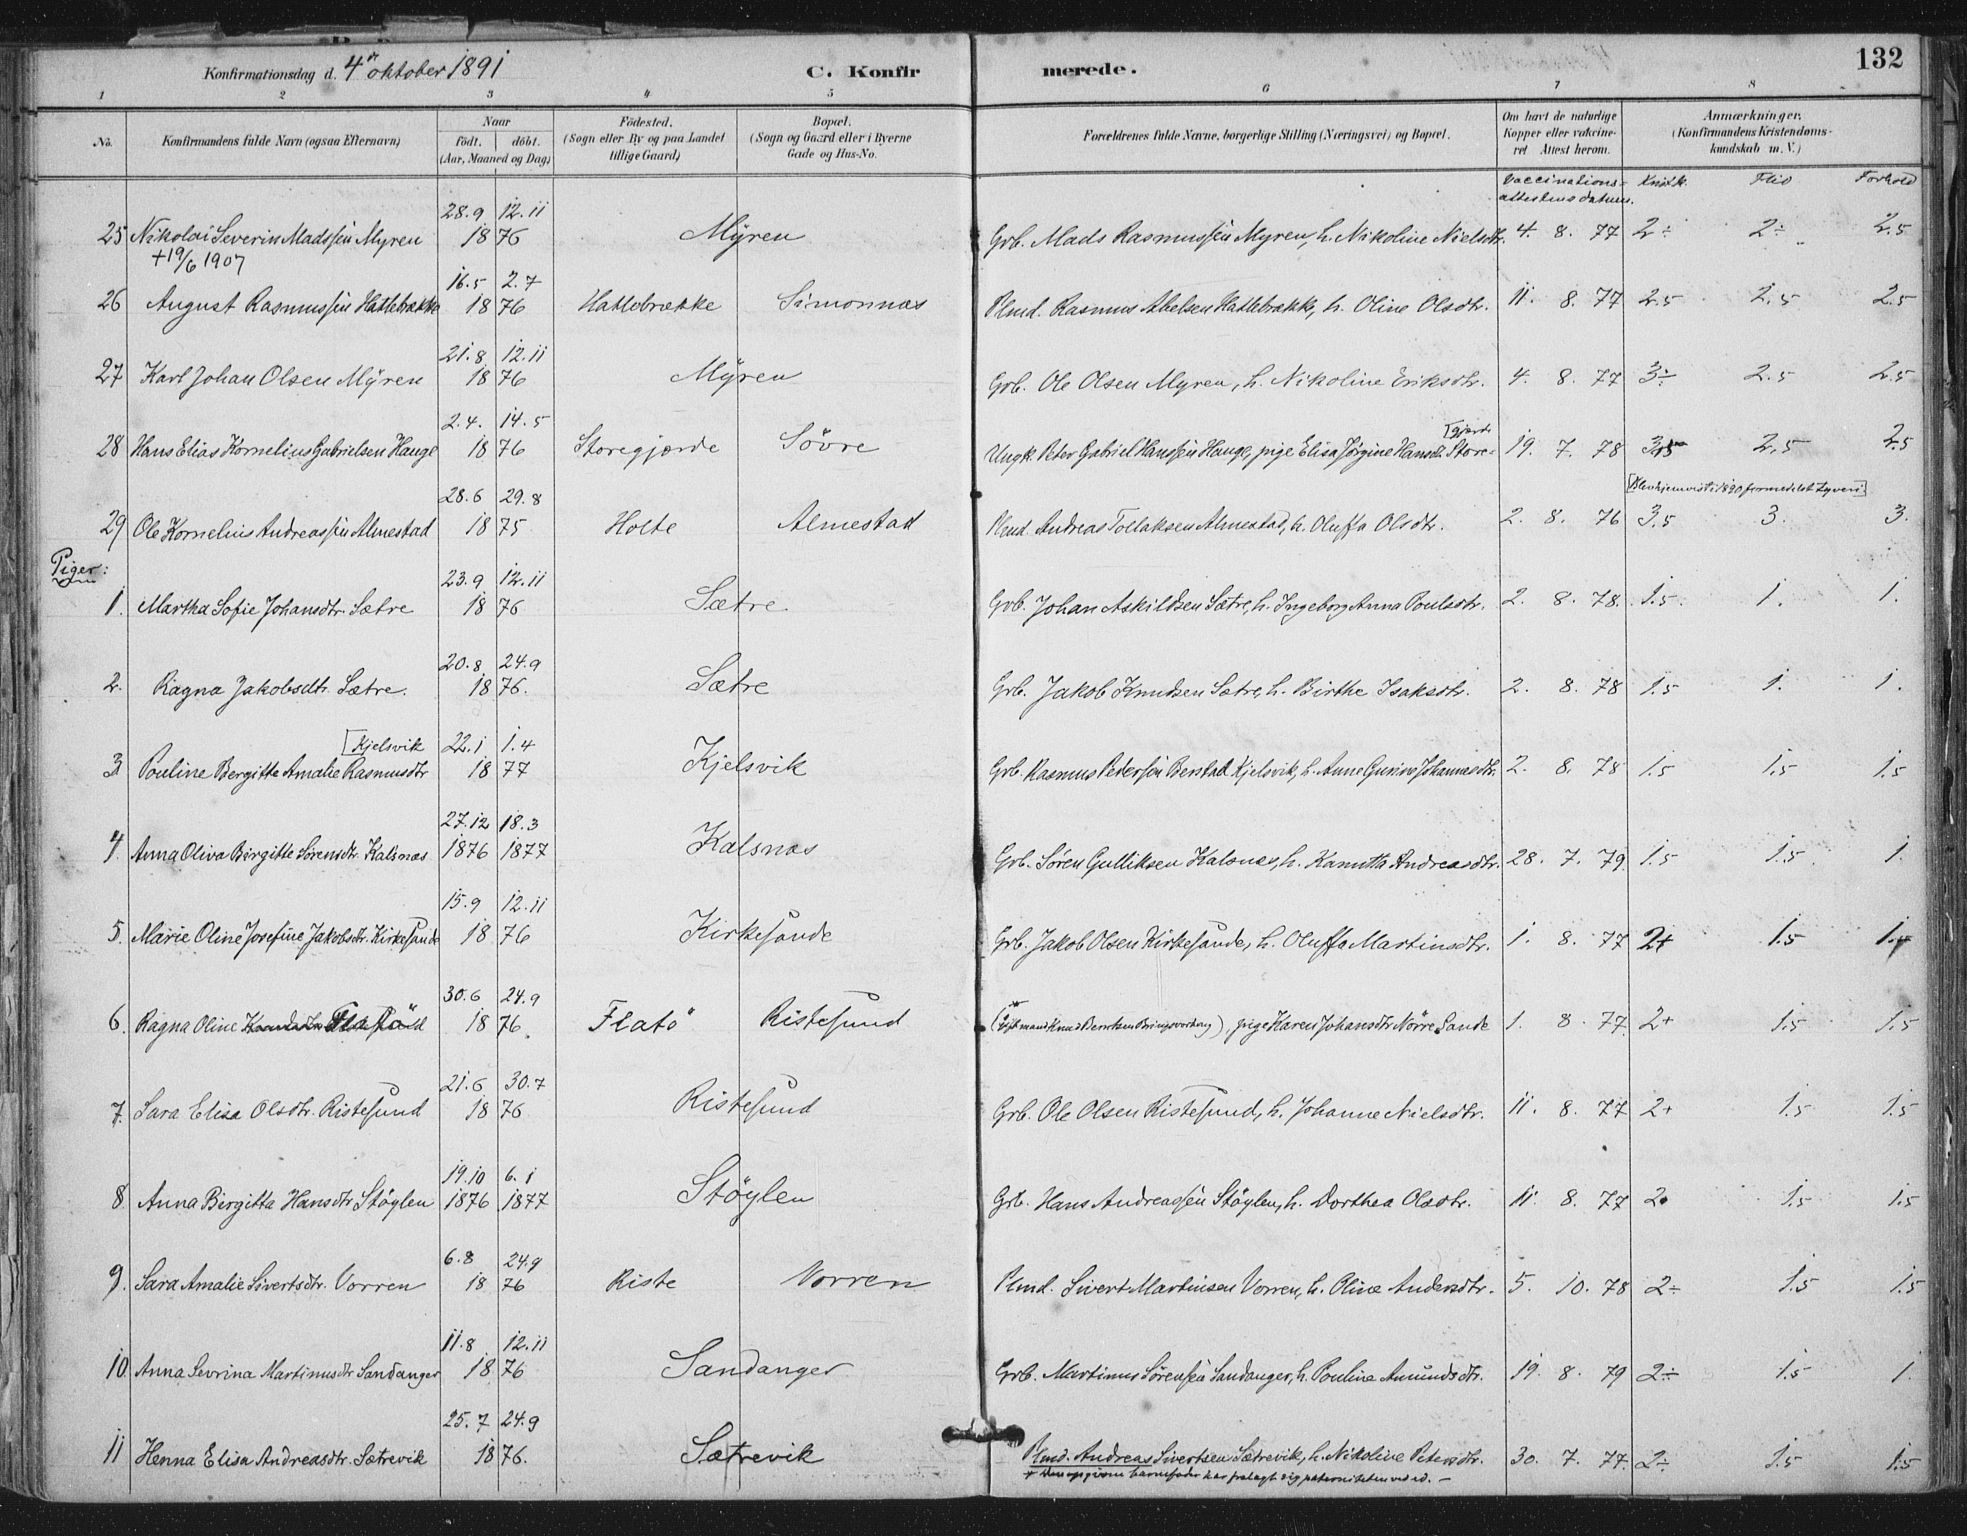 Konfirmationsdag d. 4de oktober 1891 C. Konfirmerede. 132
1 2 3 4 5 6 7 8
No. Konfirmandens fulde Navn (ogsaa Efternavn) Naar födt. döbt. (Aar, Maaned og Dag) Födested. (Sogn eller By og paa Landet tillige Gaard) Bopæl. (Sogn og Gaard eller i Byerne Gade og Hus-No. Forældrenes fulde Navne, borgerlige Stilling (Næringsvei) og Bopæl. Om havt de naturlige Kopper eller vakcineret Attest herom. Anmærkninger. (Konfirmandens Kristendomskundskab m. V.)
Vaccinations-attestens datum. Knstk. Flid Forhold
25 Nikolai Severin Madssen Myren 28.9 12.11 1876 Myren Grb. Mads Rasmussen Myren, h. Nikoline Nielsdtr. 4. 8. 77 2÷ 2÷ 2.5
+19/6 1907
26 August Rasmussen Hatlebrække 16.5 2.7 1876 Hatlebrække Simonnæs Plmd. Rasmus Abelsen Hatlebrække, h. Oline Olsdtr. 11. 8. 77 2.5 2.5 2.5
27 Karl Johan Olsen Myren 21.8 12.11 1876 Myren Grb. Ole Olsen Myren, h. Nikoline Eriksdtr. 4. 8. 77 3÷ 2.5 2.5
28 Hans Elias Kornelius Gabrielsen Hauge 2.4. 14.5 1876 Storegjerde Sövre Ungk. Peter Gabriel Hanssen Hauge, pige Elisa Jørgine Hansdtr. Store-[gjerde 19. 7. 78 3.5 2.5 2.5
29 Ole Kornelius Andreassen Almestad 28.6 29.8 1875 Holte Almestad Plmd. Andreas Tollaksen Almestad, h. Oluffa Olsdtr. 2. 8. 76 3.5 3. 3.
[Blev hjemvist i 1890 formedelst tyveri]
Piger:
1. Martha Sofie Johansdtr. Sætre 23.9 12.11 1876 Sætre Grb. Johan Askildsen Sætre, h. Ingeborg Anna Poulsdtr. 2. 8. 78. 1.5 1. 1.
2. Ragna Jakobsdtr. Sætre. 20.8 24.9 1876. Sætre Grb. Jakob Knudsen Sætre, h. Birthe Isaksdtr. 2. 8. 78 1.5 1. 1.
3 Pouline Bergitte Amalie Rasmusdtr [Kjelsvik 22.1 1.4 1877 Kjelsvik Grb. Rasmus Pedersen Berstad Kjelsvik, h. Anne Gurine Johannesdtr. 2. 8. 78 1.5 1.5 1.5
4. Anna Oliva Birgitte Sørensdtr. Kalsnæs 27.12 1876 18.3 1877 Kalsnæs Grb. Søren Gulliksen Kalsnæs, h. Kanutta Andreasdtr. 28. 7. 79. 1.5 1.5 1.
5. Marie Oline Josefine Jakobsdtr. Kirkesunde 15.9 12.11 1876 Kirkesunde Grb. Jakob Olsen Kirkesunde, h. Oluffa Martinsdtr. 1. 8. 77 2+ 1.5
6. Ragna Oline 30.6 24.9 1876. Flatö Ristesund pige Karen Johansdtr Nörre Sande 1. 8. 77. 2+ 1.5 1.5
7. Sara Elisa Olsdtr. Ristesund 21.6 30.7 1876 Ristesund Grb. Ole Olsen Ristesund, h. Johanne Nielsdtr. 11. 8. 77 2+ 1.5 1.5
8 Anna Birgitta Hansdtr. Stöylen 19.10 1876 6.1 1877 Stöylen Grb. Hans Andreassen Stöylen, h. Dorthea Olsdtr. 11. 8. 77 2 1.5 1.5
9. Sara Amalie Sivertsdtr. Vorren 6.8 24.9 1876 Riste Vorren Plmd. Sivert Martinsen Vorren, h. Oline Andersdtr. 5. 10. 78 2÷ 1.5 1.5
10. Anna Sevrina Martinusdtr Sandanger 11.8 12.11 1876 Sandanger Grb. Martinus Sørensen Sandanger, h. Pouline Amundsdtr. 19. 8. 79 2÷ 1.5 1.
11 Henna Elisa Andreasdtr. Sætrevik 25.7 24.9 1876. Sætrevik Plmd. Andreas Sivertsen Sætrevik, h. Nikoline Petersdtr. 30. 7. 77. 2÷ 1.5 1.5
* Den opgivne barnefader har fralagt sig paterniteten ved ed. —